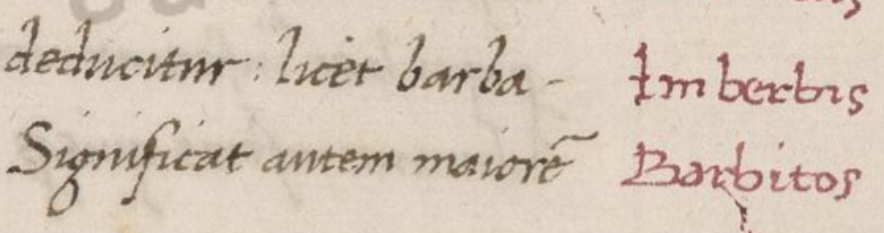 deducitur : licet barba - Imberbis
Significat autem maiorē Barbitos